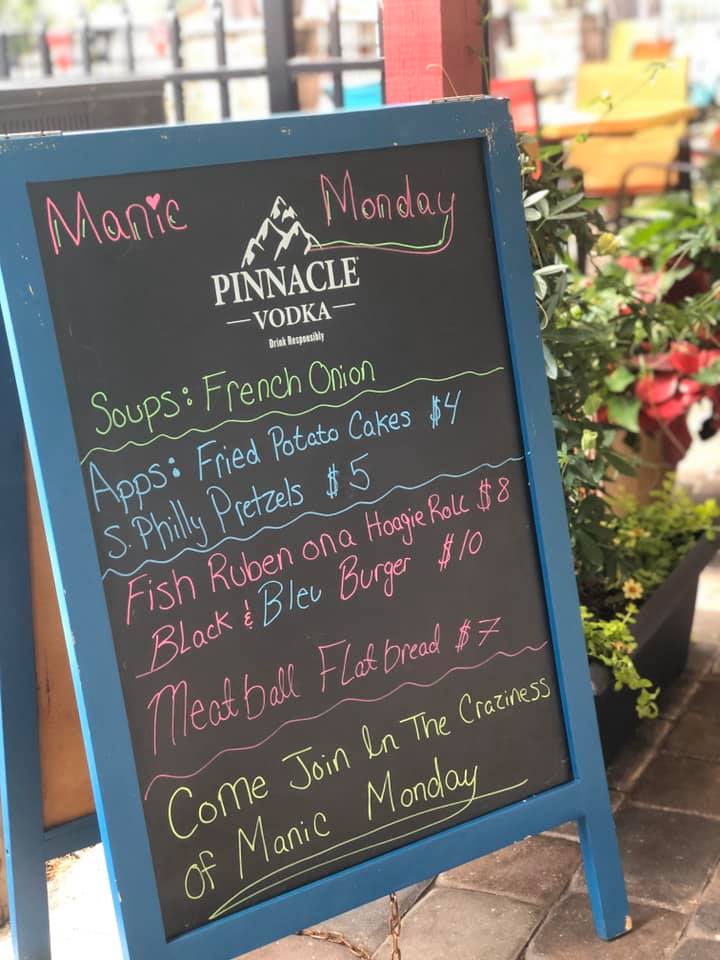 Manic Monday
PINNACLE
VODKA
Drink Responsibly
Soups: French Onion
Apps: Fried Potato Cakes $4
S. Philly Pretzels $5
Fish Ruben on a Hoagie Roll $8
Black & Bleu Burger $10
Meatball Flatbread $7
Come Join In The Craziness
Of Manic Monday